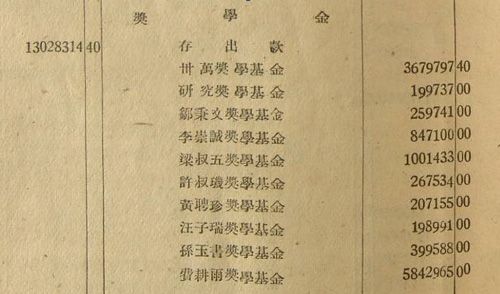 獎學金
13028314 40 存出款
卅萬獎學基金 3679797 40
研究獎學基金 199737 00
鄒秉文獎學基金 259741 00
李崇誠獎學基金 847100 00
梁叔五獎學基金 1001433 00
許叔璣獎學基金 267534 00
黃聘珍獎學基金 207155 00
汪子瑞獎學基金 198991 00
孫玉書獎學基金 399588 00
費耕雨獎學基金 5842965 00